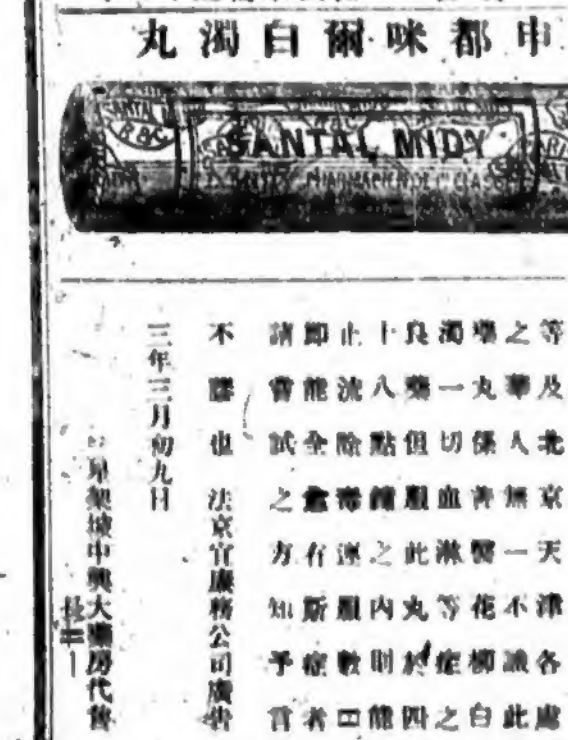 申都咪爾白濁丸
SANTAL MIDY
等及北京天津各處
之華人無一不識此
藥丸係善醫花柳白
濁一切血淋等症之
良藥但服此丸於四
十八點鐘之內則能
止流除毒連服數日
即能全愈有斯症者
請嘗試之方知予言
不謬也 法京官廉務公司廣告
三年三月初九日
星架坡中興大藥房代售